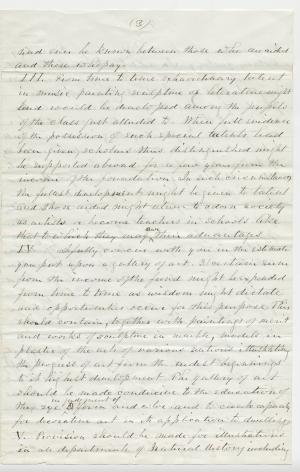 (3)
need ever be known between those who are aided
and those who pay.
III. From time to time extraordinary talent
in music painting sculpture or literature might
and would be developed among the pupils
of the class just alluded to. When full evidence
of the possession of such special talents had
been given, scholars thus distinguished might
be supported abroad for a year or more from the
income of the foundation. In such circumstances
the fullest development might be given to talent
and those aided might return to adorn society
as artists or become teachers in schools like
that to which they may owe their advantages
IV. I fully concur with you in the estimate
you put upon a gallery of art. A certain sum
from the income of the fund might be expended
from time to time as wisdom might dictate
and opportunities occur for this purpose. This
should contain, together with paintings of merit
and works of sculpture in marble, models in
plaster of the art of various nations illustrating
the progress of art from the rudest beginnings
to its highest development. The gallery of art
should be made conducive to the education of
the eye in judgment of form and color and to create capacity
for decorative art in its application to dwellings
V. Provision should be made for illustrations
in all departments of Natural History including